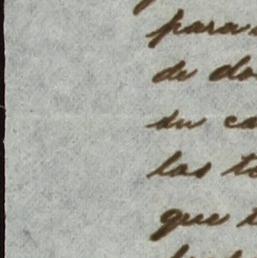 para
de do
su ca
las t
que